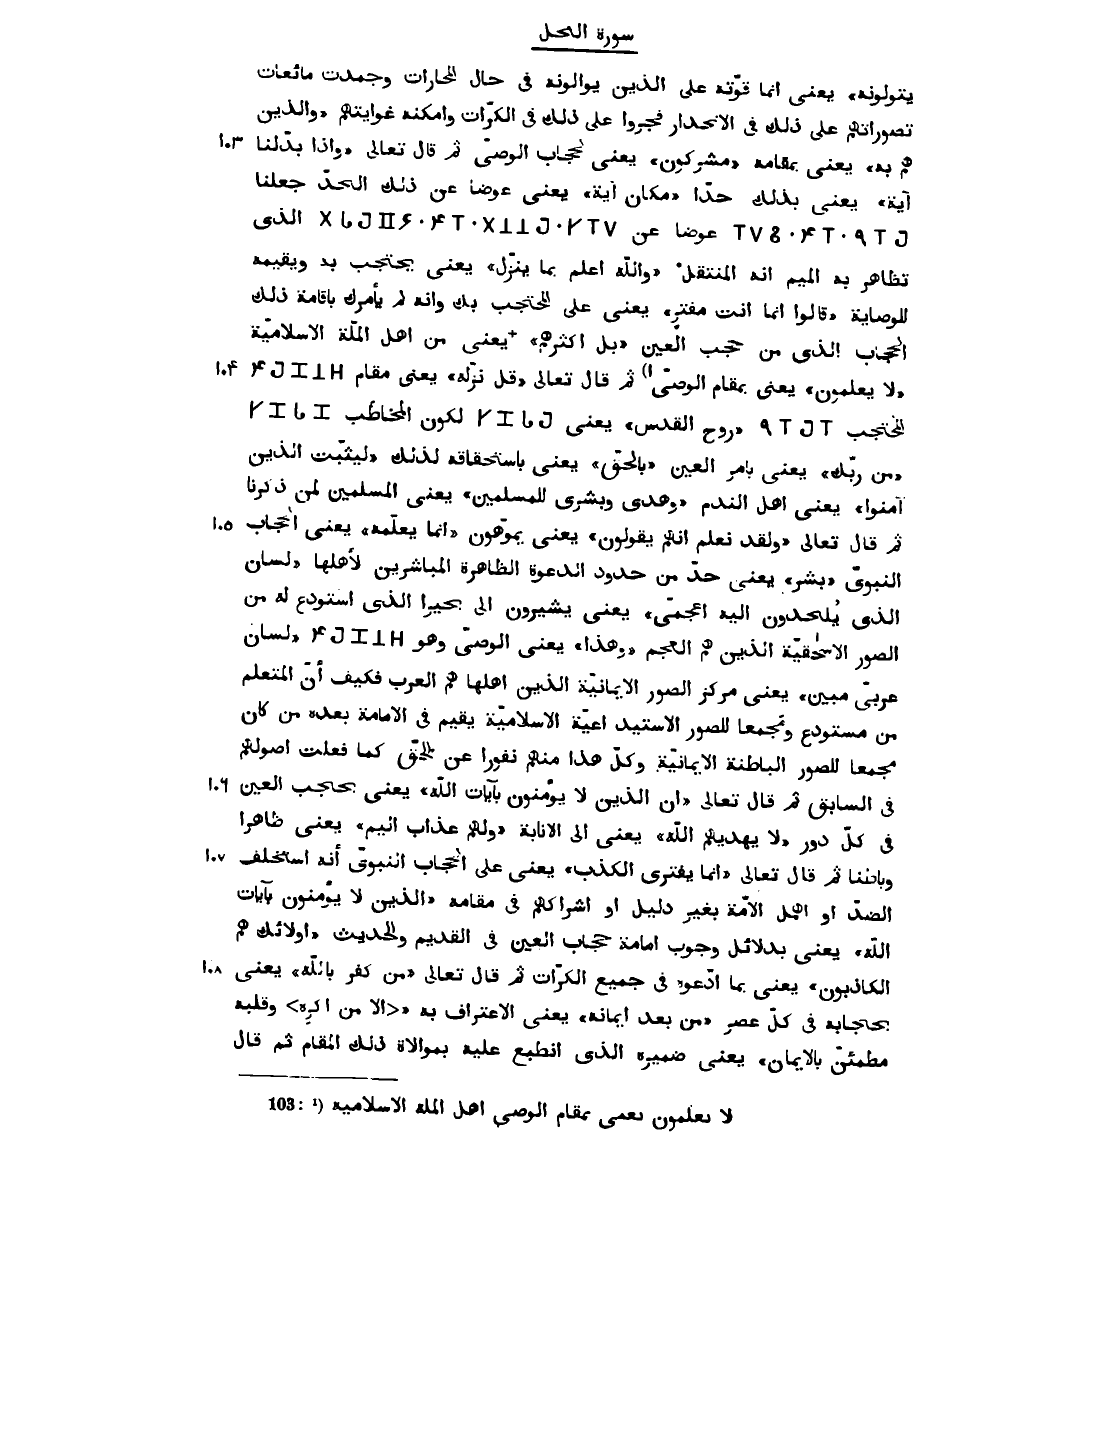 سورة النحل
يتولونه» يعنى انما قوّته على الذين يوالونه فى حال المحارات وجمدت مائعات
تصوراتهم على ذلك فى الانحدار فجروا على ذلك فى الكرّات وامكنه غوايتهم «والذين
هم به» يعنى بمقامه «مشركون» يعنى لحجاب الوصىّ ثم قال تعالى «واذا بدّلنا ١٠٣
آية» يعنى بذلك حدّا «مكان آية» يعنى عوضا عن ذلك الحدّ جعلنا
عوضا عن الذى
تظاهر به الميم انه المنتقل. «والله اعلم بما ينزّل» يعنى بحتجب به ويقيمه
للوصاية «قالوا انما انت مفتر» يعنى على المحتجب بك وانه لم يأمرك باقامة ذلك
الحجاب الذى من حجب العين «بل اكثرهم» +يعنى من اهل الملّة الاسلاميّة
«لا يعلمون» يعنى بمقام الوصىّ ١) ثم قال تعالى «قل نزّله» يعنى مقام ١٠٤
المحتجب «روح القدس» يعنى لكون المخاطب
«من ربّك» يعنى بامر العين «بالحقّ» يعنى باستحقاقه لذلك «ليثبّت الذين
آمنوا» يعنى اهل الندم «وهدى وبشرى للمسلمين» يعنى المسلمين لمن ذكرنا
ثم قال تعالى «ولقد نعلم انهم يقولون» يعنى يموّهون «انما يعلّمه» يعنى الحجاب ١٠٥
النبوىّ «بشر» يعنى حدّ من حدود الدعوة الظاهرة المباشرين لأهلها «لسان
الذى يُلحدون اليه اعجمىّ» يعنى يشيرون الى بحيرا الذى استودع له من
الصور الاسحٰقيّة الذين هم العجم «وهذا» يعنى الوصىّ وهو «لسان
عربىّ مبين» يعنى مركز الصور الايمانيّة الذين اهلها هم العرب فكيف أنّ المتعلم
من مستودع ومجمعا للصور الاستيد اعيّة الاسلاميّة يقيم فى الامامة بعده من كان
مجمعا للصور الباطنة الايمانيّة وكلّ هذا منهم نفورا عن الحقّ كما فعلت اصولهم
فى السابق ثم قال تعالى «ان الذين لا يؤمنون بآيات الله» يعنى بحاجب العين ١٠٦
فى كلّ دور «لا يهديهم الله» يعنى الى الانابة «ولهم عذاب اليم» يعنى ظاهرا
وباطنا ثم قال تعالى «انما يفترى الكذب» يعنى على الحجاب النبوىّ أنه استخلف ١٠٧
الضدّ او اهمل الامّة بغير دليل او اشراكهم فى مقامه «الذين لا يؤمنون بآيات
الله» يعنى بدلائل وجوب امامة حجاب العين فى القديم والحديث «اولائك هم
الكاذبون» يعنى بما ادّعوه فى جميع الكرّات ثم قال تعالى «من كفر بالله» يعنى ١٠٨
بحجابه فى كلّ عصر «من بعد ايمانه» يعنى الاعتراف به «<الا من اكره> وقلبه
مطمئنّ بالايمان» يعنى ضميره الذى انطبع عليه بموالاة ذلك المقام ثم قال
103: ¹) لا يعلمون يعنى بمقام الوصي اهل الملة الاسلامية